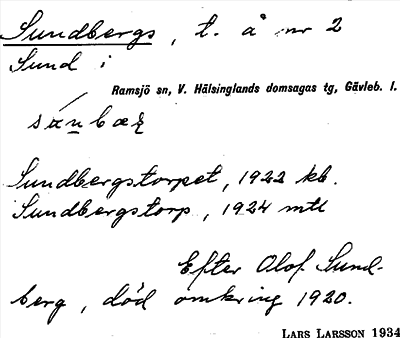 Sundbergs, t. å nr 2
Sund i
Ramsjö sn, V. Hälsinglands domsagas tg, Gävleb. l.
Sundbergstorpet, 1922 kb.
Sundbergstorp, 1924 mtl
Efter Olof Sund-
berg, död omkring 1920.
LARS LARSSON 1934